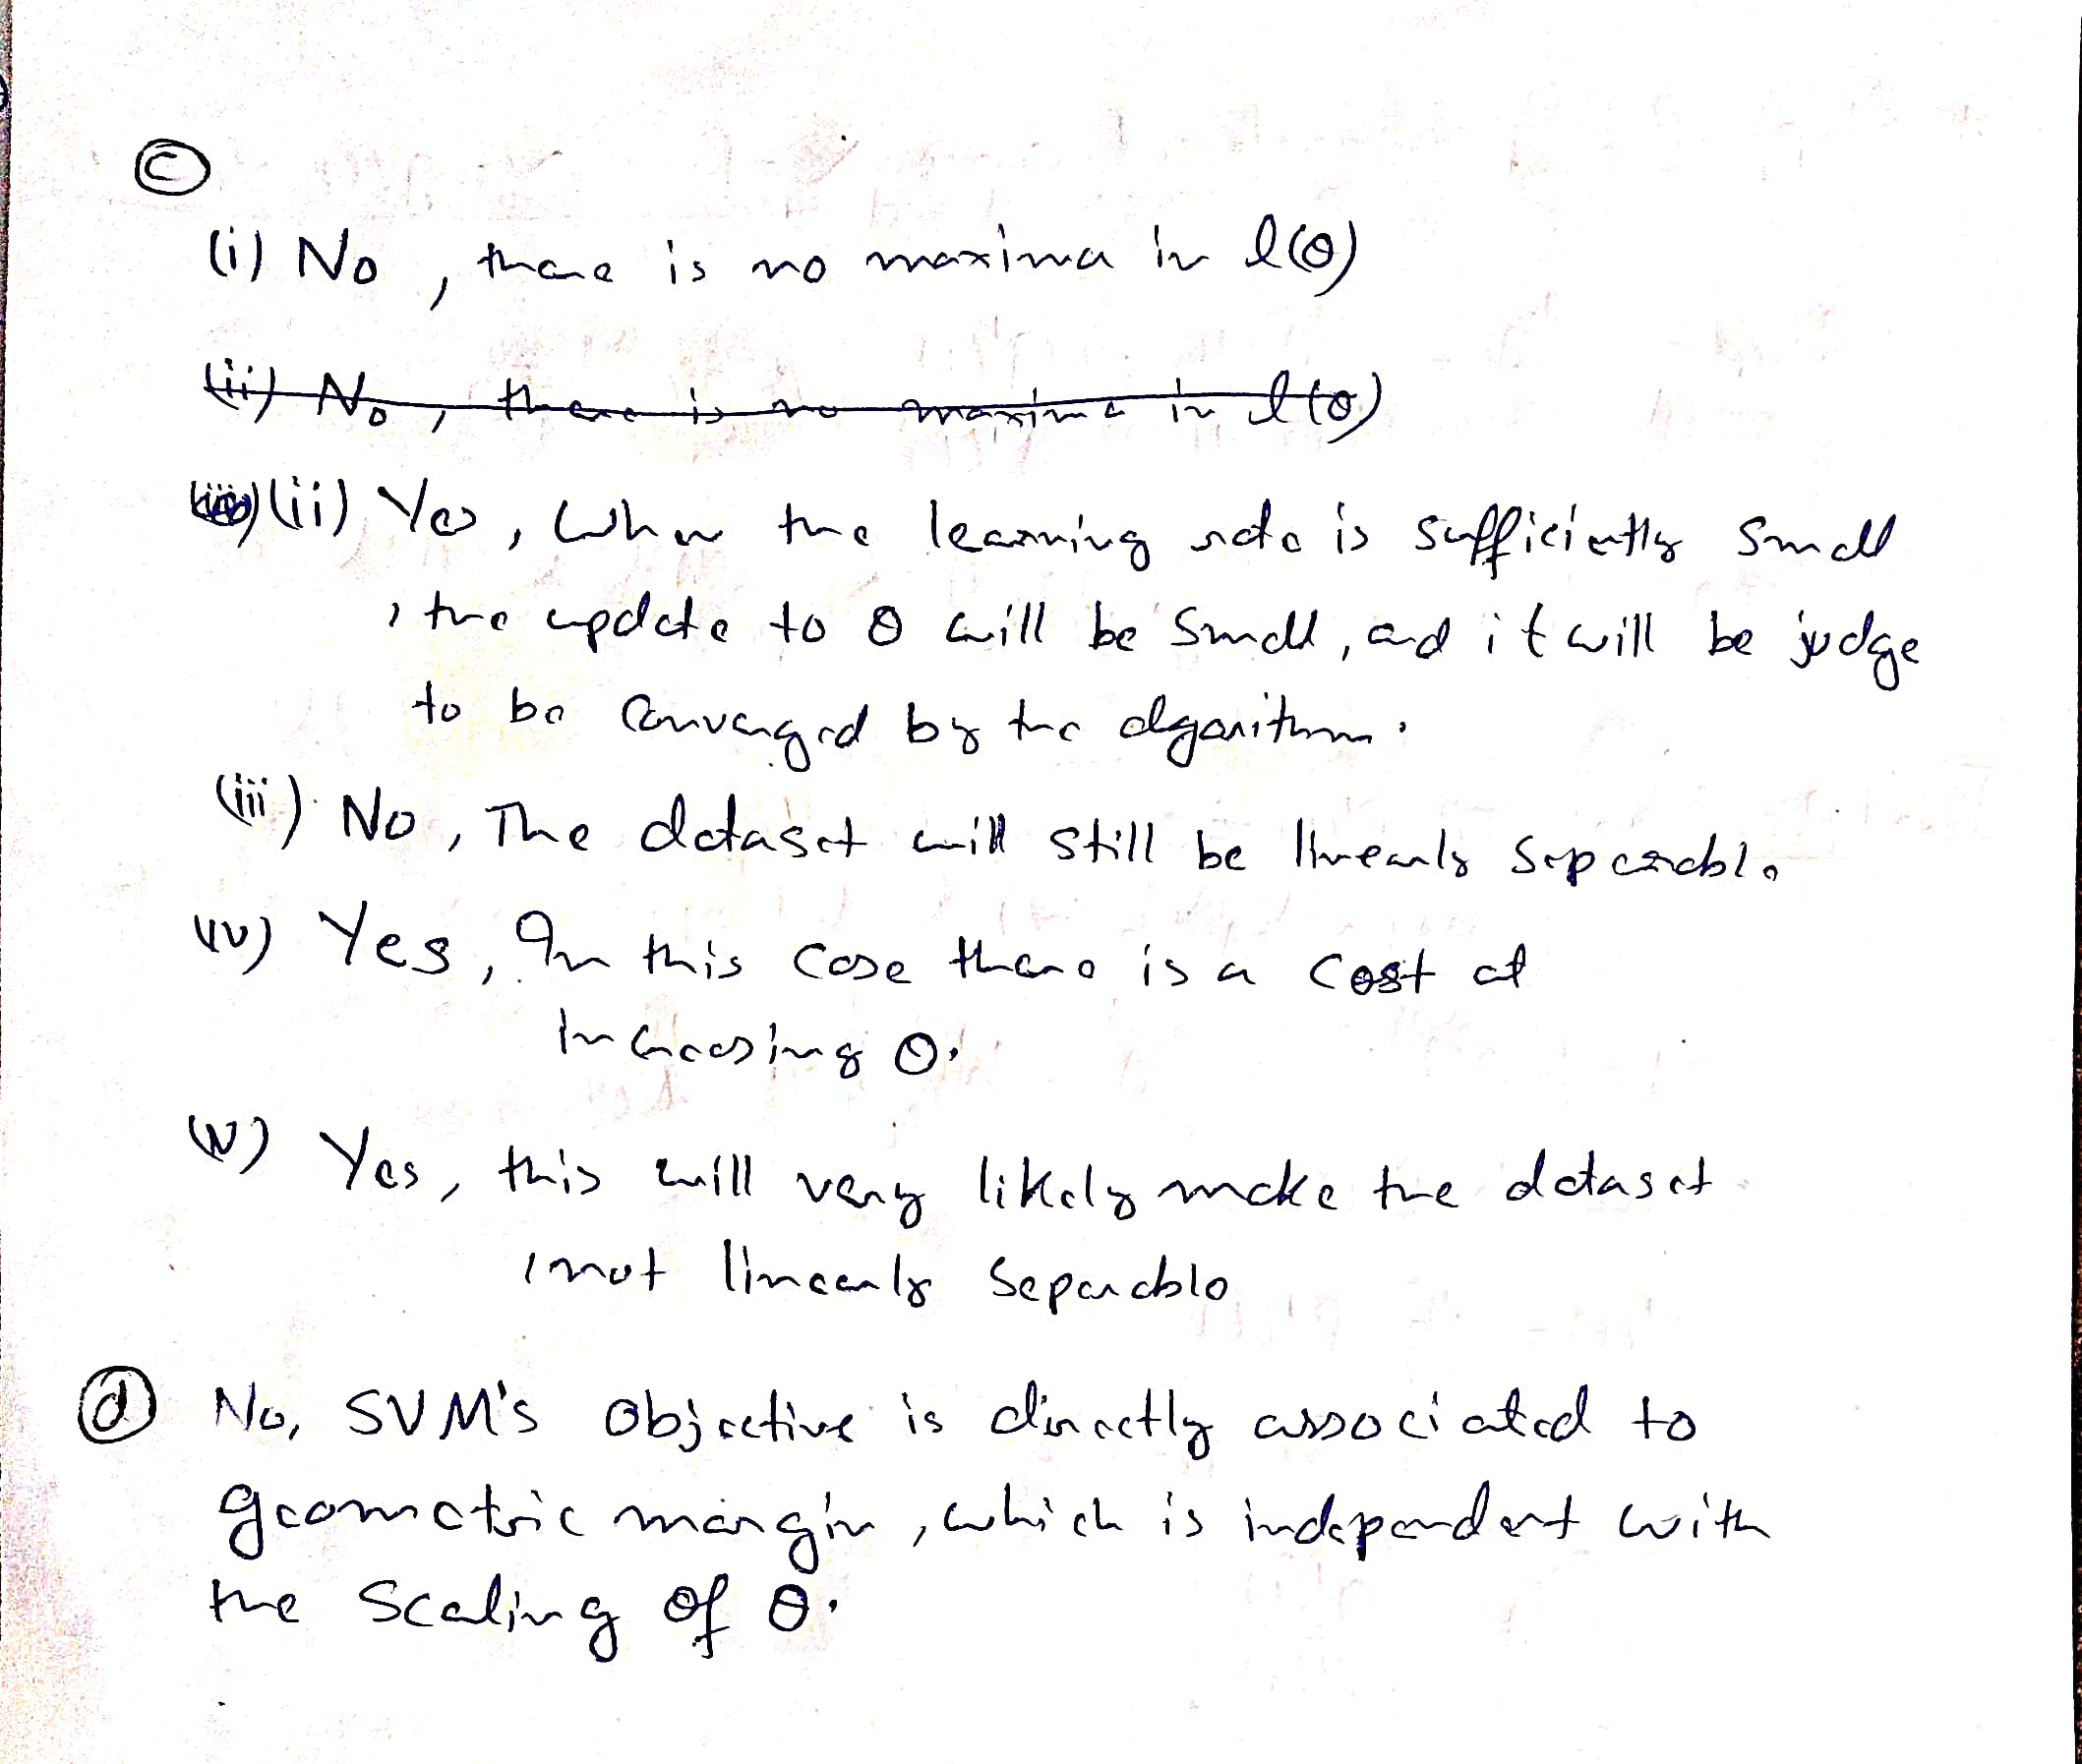 (c)
(i) No, there is no maxima in l(θ)
(ii) No, there is no maxima in l(θ)
(ii) Yes, when the learning rate is sufficiently small
, the update to θ will be small, and it will be judge
to be converged by the algorithm.
(iii) No, The dataset will still be linearly separable
(iv) Yes, In this case there is a cost at
increasing θ.
(v) Yes, this will very likely make the dataset
not linearly separable
(d) No, SVM's objective is directly associated to
geometric margin, which is independent with
the scaling of θ.